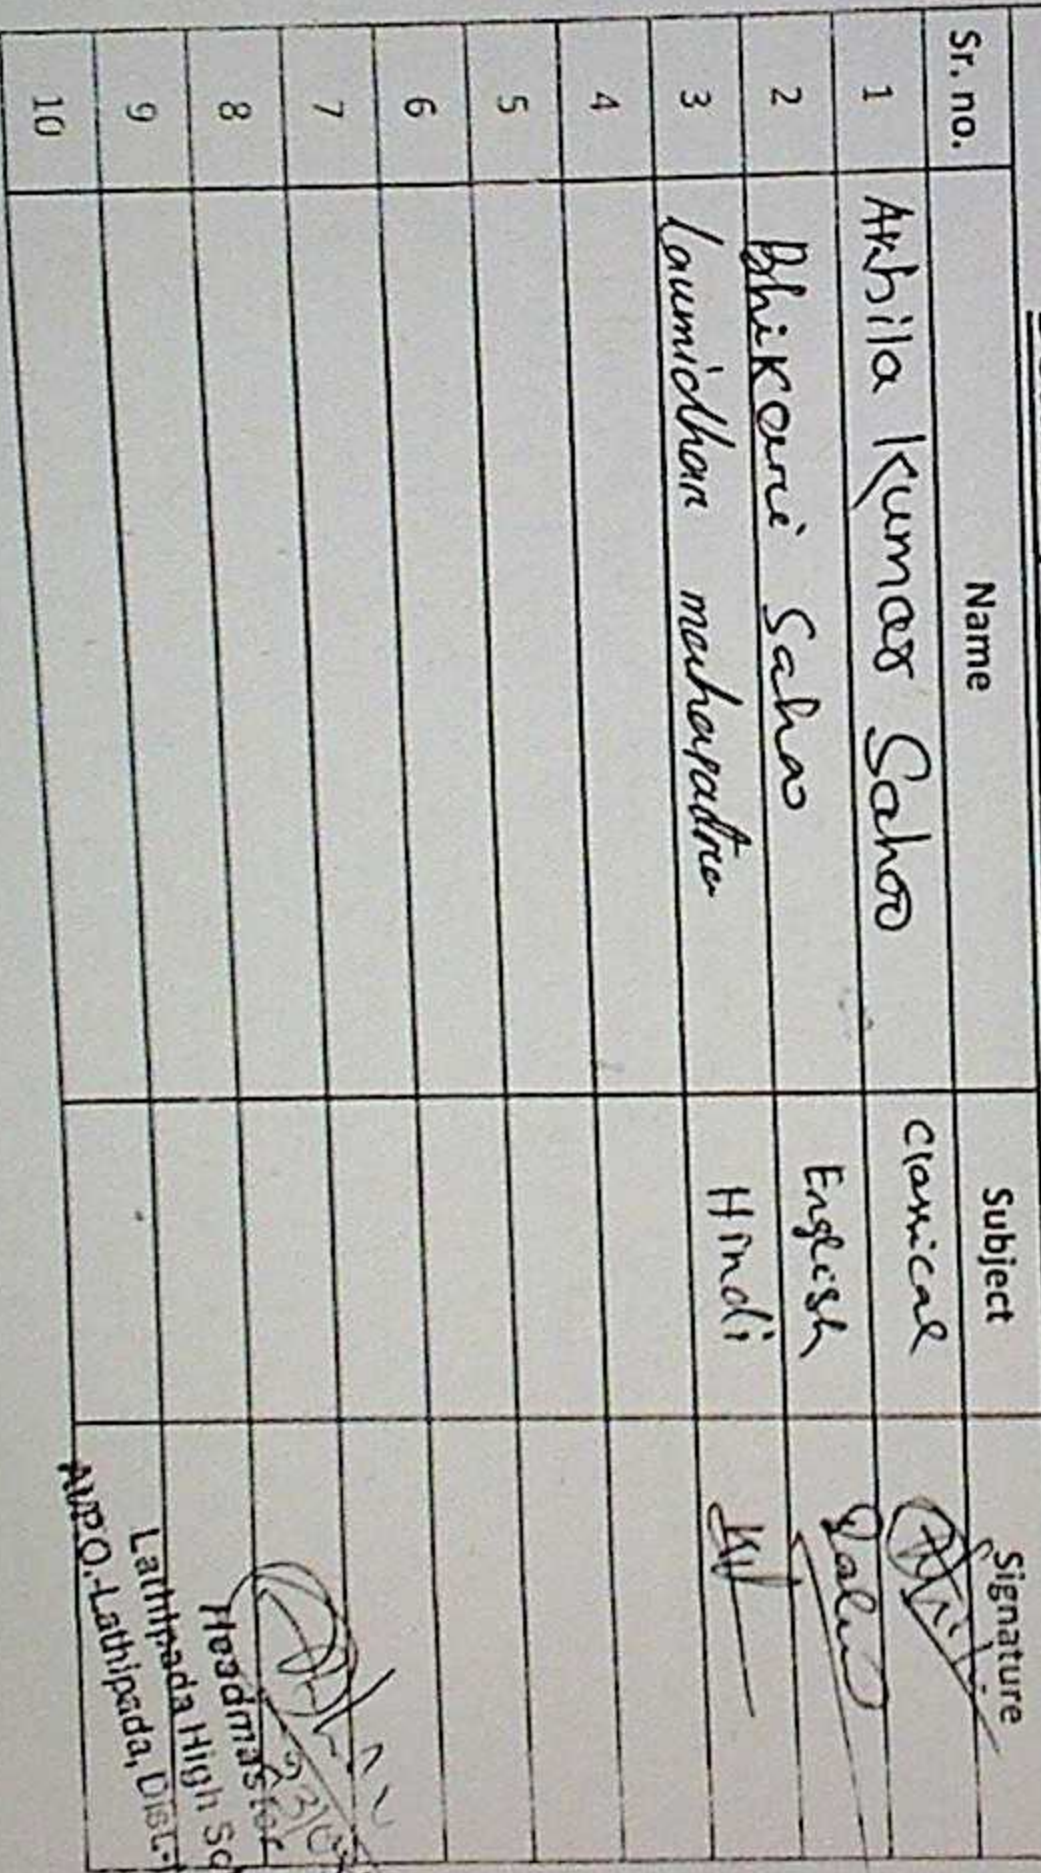 Sr. no. Name Subject Signature
1 Akhila Kumar Sahoo Classical
2 Bhikari Sahoo English Sahoo
3 Laxmidhar mahapatra Hindi
4
5
6
7
8
9
10
Headmaster
Lathipada High Sc
At/P.O.-Lathipada, Dist.-